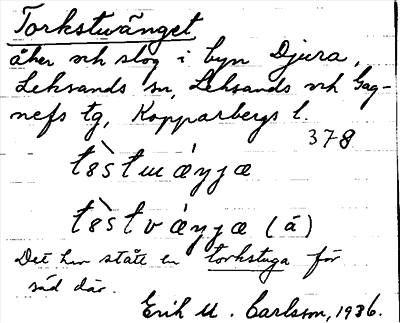 Torkstuvänget
åker och slog i byn Djura,
Leksands sn, Leksands och Gag-
nefs tg, Kopparbergs l.
378
Det har stått en torkstuga för
säd där.
Erik M. Carlsson, 1936.